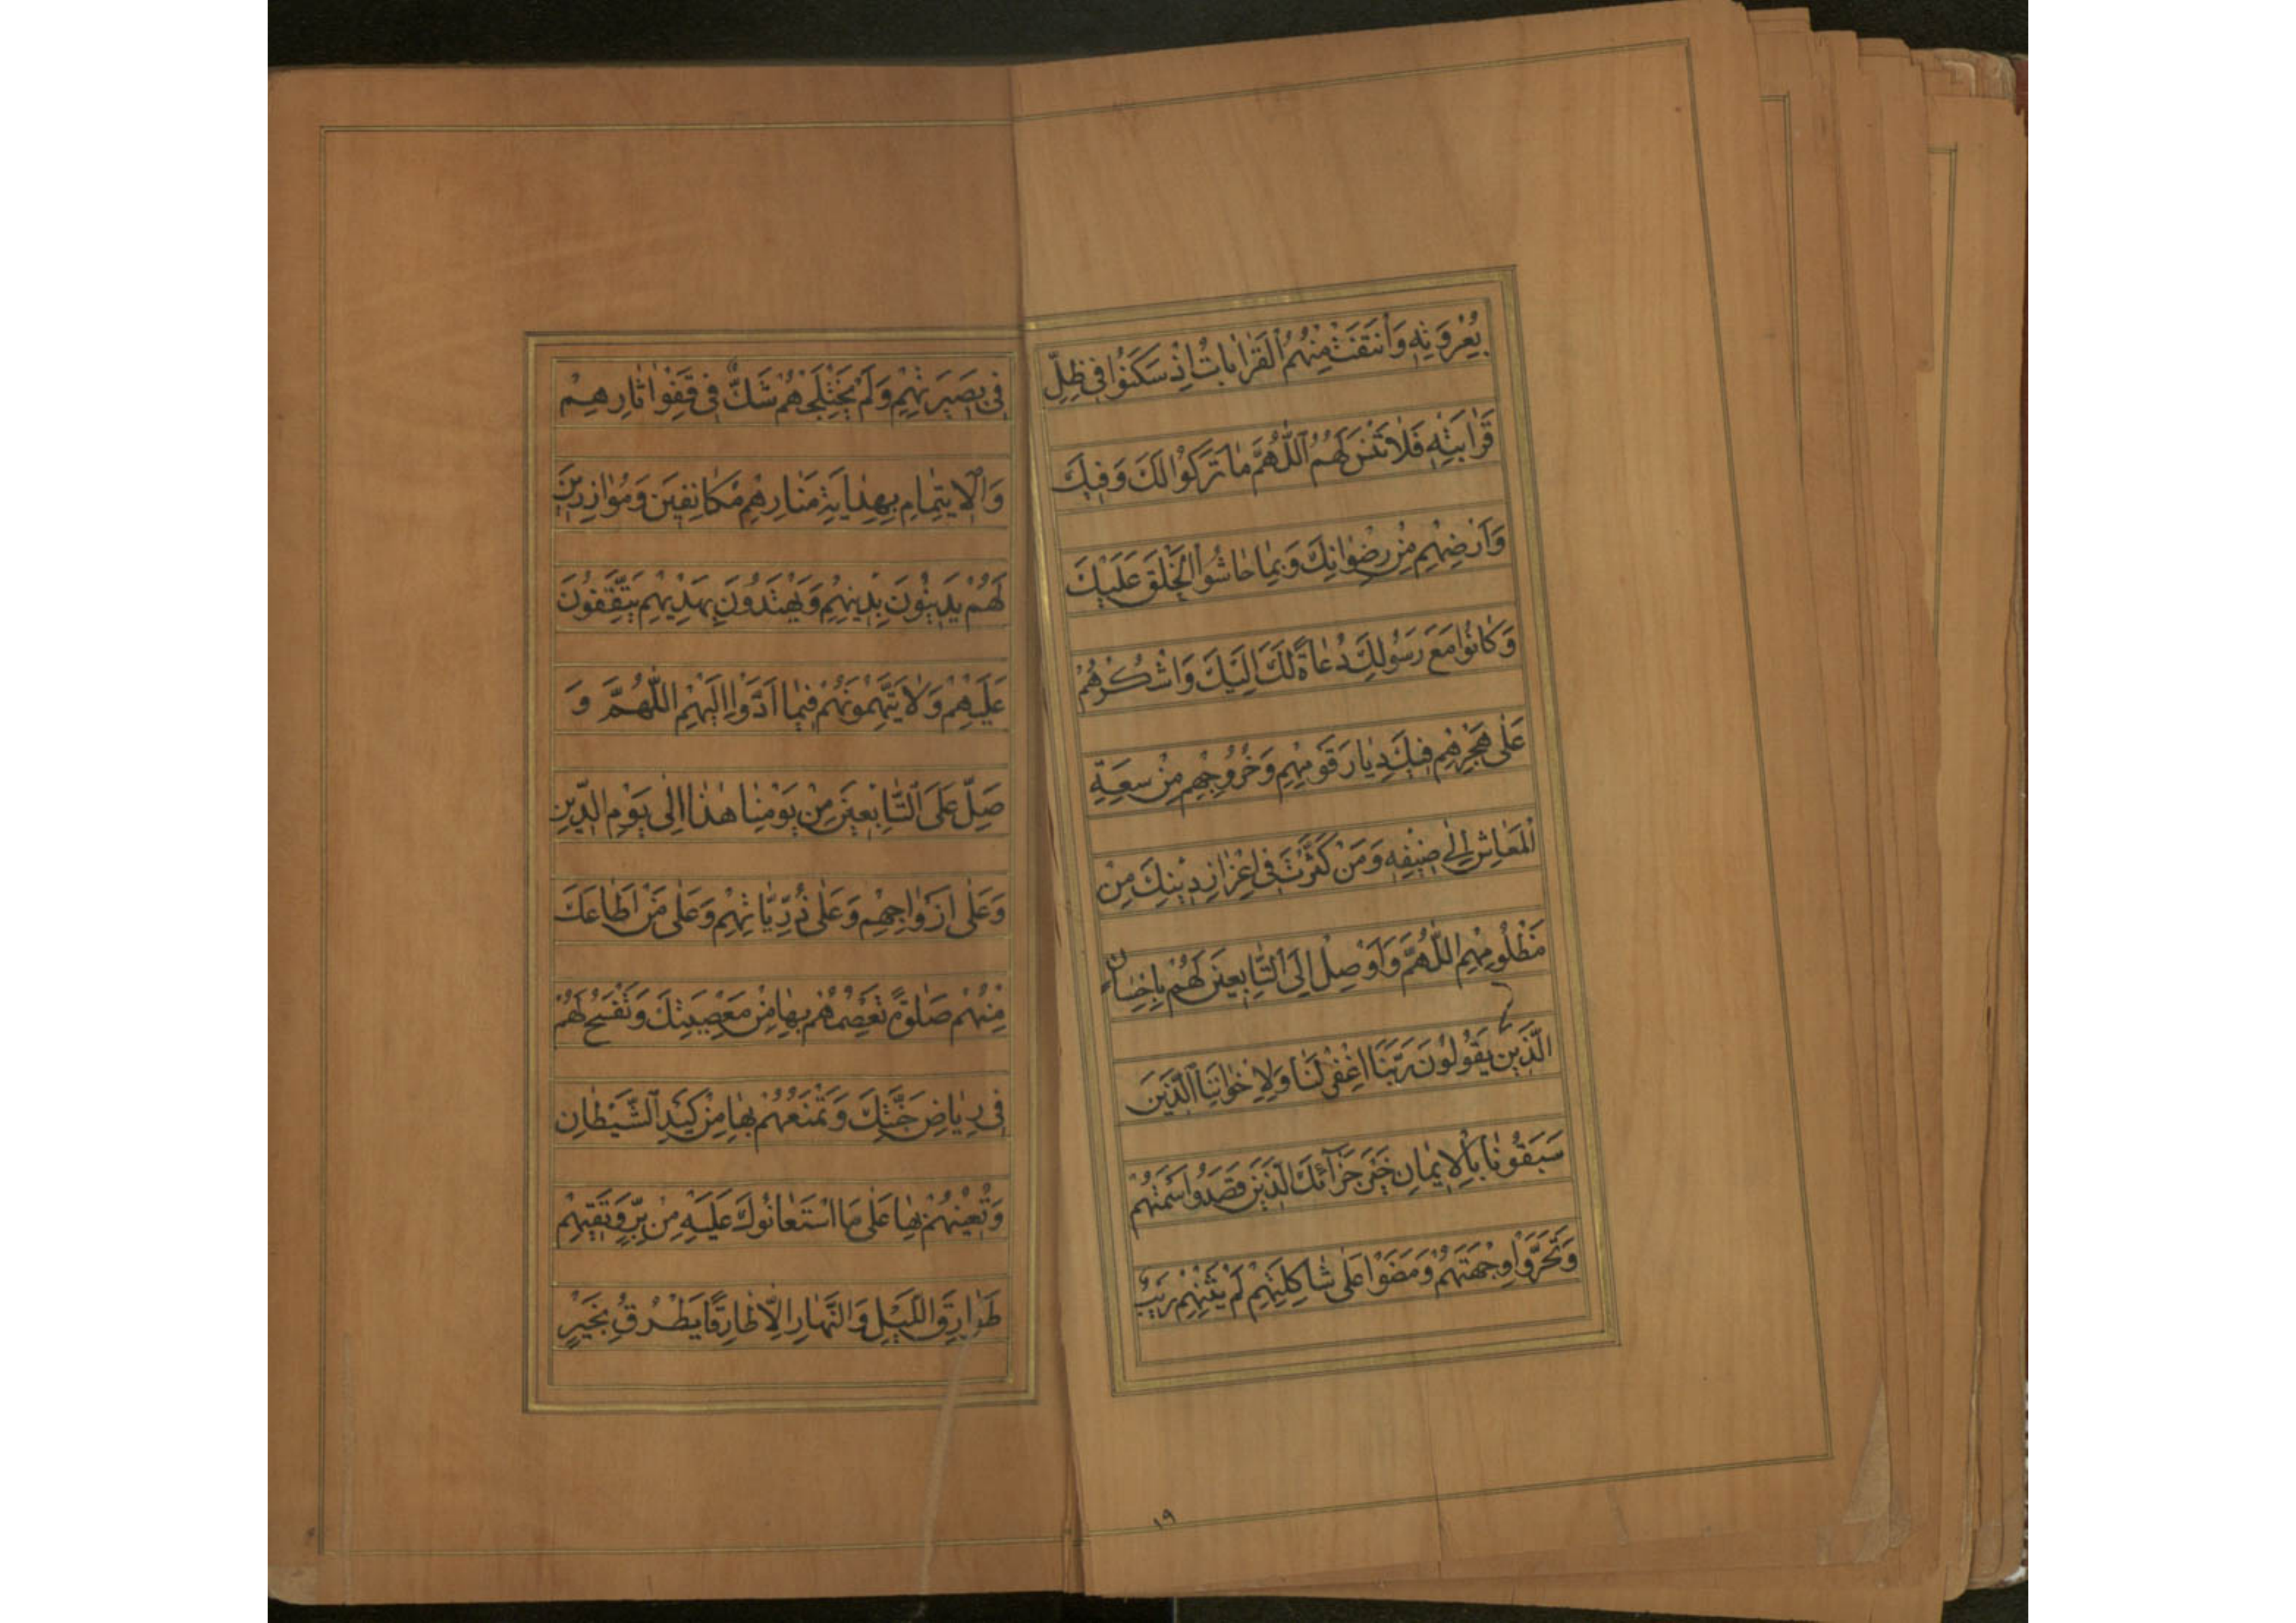 بِعُرْوَتِهِ وَانْتَفَتْ مِنْهُمُ الْقَرَابَاتُ اِذْ سَكَنُوا فِي ظِلِّ
قَرَابَتِهِ فَلَا تَنْسَ لَهُمُ اللّٰهُمَّ مَا تَرَكُوا لَكَ وَفِيكَ
وَاَرْضِهِمْ مِنْ رِضْوَانِكَ وَبِمَا حَاشُوا الْخَلْقَ عَلَيْكَ
وَكَانُوا مَعَ رَسُولِكَ دُعَاةً لَكَ اِلَيْكَ وَاشْكُرْهُمْ
عَلٰى هَجْرِهِمْ فِيكَ دِيَارَ قَوْمِهِمْ وَخُرُوجِهِمْ مِنْ سَعَةِ
الْمَعَاشِ اِلٰى ضِيقِهِ وَمَنْ كَثَّرْتَ فِي اِعْزَازِ دِينِكَ مِنْ
مَظْلُومِهِمْ اللّٰهُمَّ وَاَوْصِلْ اِلَى التَّابِعِينَ لَهُمْ بِاِحْسَانٍ
الَّذِينَ يَقُولُونَ رَبَّنَا اغْفِرْ لَنَا وَلِاِخْوَانِنَا الَّذِينَ
سَبَقُونَا بِالْاِيمَانِ خَيْرَ جَزَآئِكَ الَّذِينَ قَصَدُوا سَمْتَهُمْ
وَتَحَرَّوْا وِجْهَتَهُمْ وَمَضَوْا عَلٰى شَاكِلَتِهِمْ لَمْ يَثْنِهِمْ رَيْبٌ
١٩
فِي بَصِيرَتِهِمْ وَلَمْ يَخْتَلِجْهُمْ شَكٌّ فِي قَفْوِ اٰثَارِهِمْ
وَالْاِيتِمَامِ بِهِدَايَةِ مَنَارِهِمْ مُكَانِفِينَ وَمُوَازِرِينَ
لَهُمْ يَدِينُونَ بِدِينِهِمْ وَيَهْتَدُونَ بِهَدْيِهِمْ يَتَّفِقُونَ
عَلَيْهِمْ وَلَا يَتَّهِمُونَهُمْ فِيمَا اَدَّوْا اِلَيْهِمْ اللّٰهُمَّ وَ
صَلِّ عَلَى التَّابِعِينَ مِنْ يَوْمِنَا هٰذَا اِلٰى يَوْمِ الدِّينِ
وَعَلٰى اَزْوَاجِهِمْ وَعَلٰى ذُرِّيَّاتِهِمْ وَعَلٰى مَنْ اَطَاعَكَ
مِنْهُمْ صَلٰوةً تَعْصِمُهُمْ بِهَا مِنْ مَعْصِيَتِكَ وَتَفْسَحُ لَهُمْ
فِي رِيَاضِ جَنَّتِكَ وَتَمْنَعُهُمْ بِهَا مِنْ كَيْدِ الشَّيْطَانِ
وَتُعِينُهُمْ بِهَا عَلٰى مَا اسْتَعَانُوكَ عَلَيْهِ مِنْ بِرٍّ وَتَقِيهِمْ
طَوَارِقَ اللَّيْلِ وَالنَّهَارِ اِلَّا طَارِقًا يَطْرُقُ بِخَيْرٍ